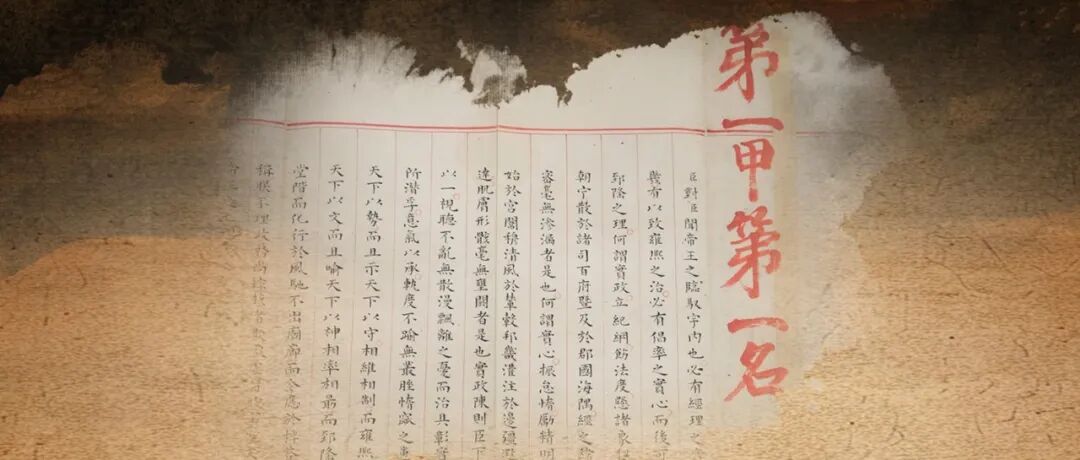 第一甲第一名
臣對臣聞帝王之臨馭宇內也必有經理之
有以致雍熙之治必有倡率之實心而後可
郅隆之理何謂實政立紀綱飭法度懸諸象
朝宁散於諸司百府暨及於郡國海隅經之
密毫無滲漏者是也何謂實心振怠惰勵精明
始於宮闈穆清風於輦轂邦畿灌注於邊疆
達肌膚形骸毫無壅閼者是也實政陳則臣下
以一視聽不亂無散漫飄離之憂而治具彰實
所潛孚意氣以承軌度不踰無叢脞惰窳之患
天下以勢而且示天下以守相維相制而雍熙
天下以文而且喻天下以神相率相勗而郅隆
堂階而化行於風馳不出廟廊而令應於桴答